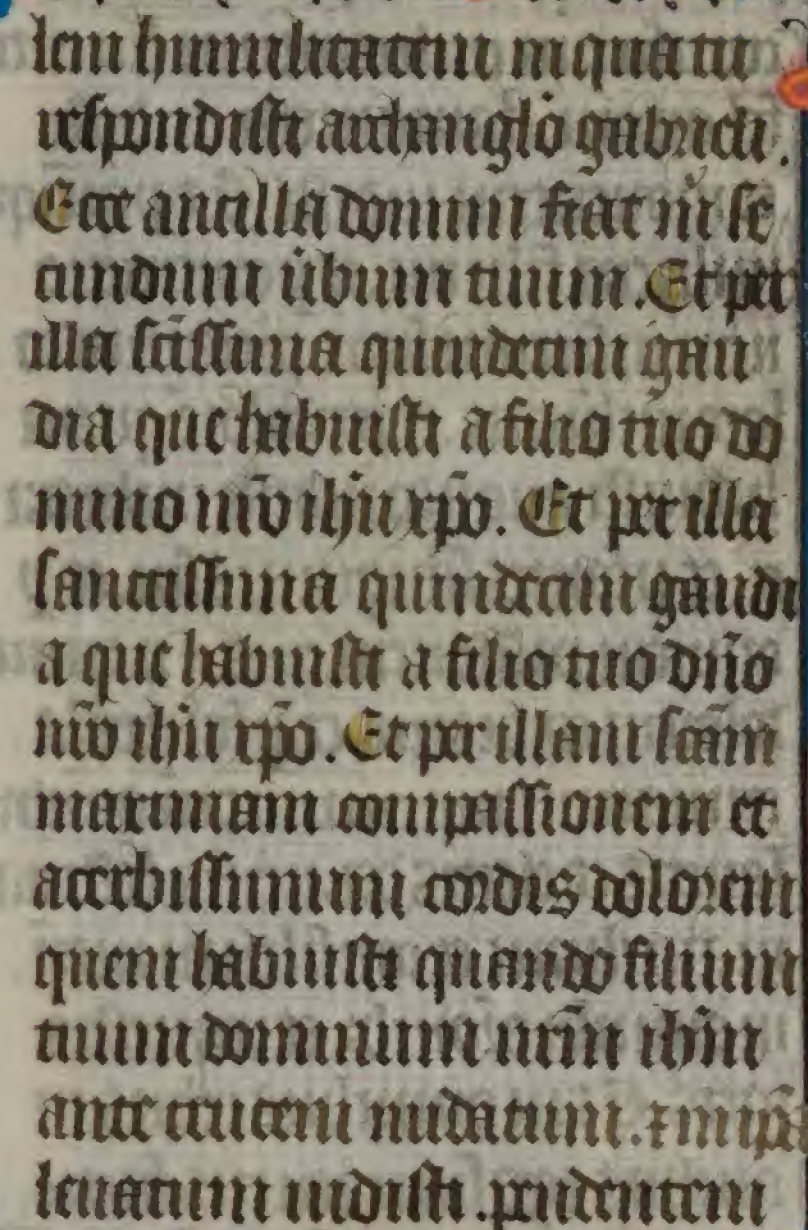 lem humilitatem in qua tu
respondisti archanglo gabrieli.
Ecce ancilla domini fiat mͥ se
cundum ūbum tuum. Et per
illa scīssima quindecim gau
dia que habuisti a filio tuo do
mino nr̄o ihū xp̄o. Et per illa
sanctissima quindecim gaudi
a que habuisti a filio tuo dn̄o
nr̄o ihū xp̄o. Et per illam scām
maximam compassionem et
acerbissimum cordis dolorem
quem habuisti quando filium
tuum dominum nr̄m ihm̄
ante crucem nudatum. ⁊ in ip̄a
leuatum uidisti. pendentem